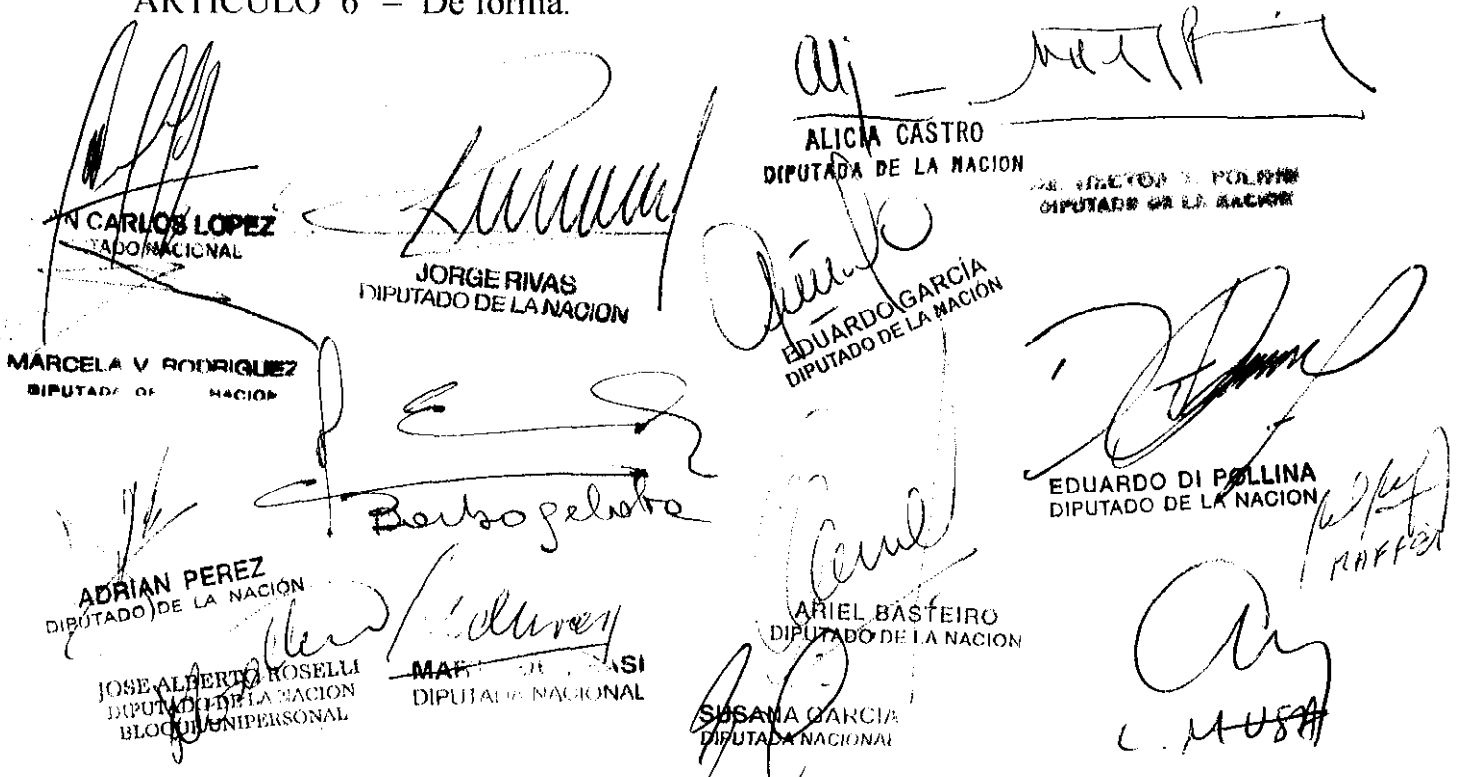 ARTICULO 6 – De forma.
ALICIA CASTRO
DIPUTADA DE LA NACION
DIPUTADO DE LA NACION
N CARLOS LOPEZ
TADO NACIONAL
JORGE RIVAS
DIPUTADO DE LA NACION
EDUARDO GARCÍA
DIPUTADO DE LA NACIÓN
MARCELA V RODRIGUEZ
NACION
Barbagelata
EDUARDO DI POLLINA
DIPUTADO DE LA NACION
MAFFEI
ADRIAN PEREZ
DIPUTADO DE LA NACIÓN
ARIEL BASTEIRO
DIPUTADO DE LA NACION
JOSE ALBERTO ROSELLI
DIPUTADO DE LA NACION
BLOQUE UNIPERSONAL
DIPUTADA NACIONAL
SUSANA GARCIA
DIPUTADA NACIONAL
L. MUSA